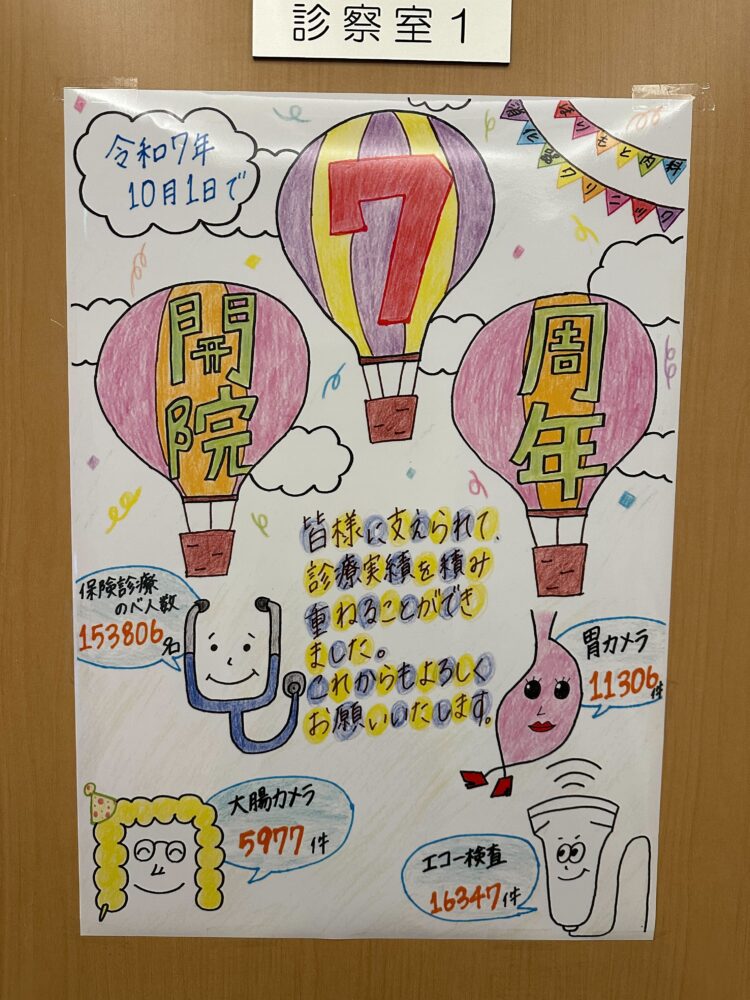 診察室1
令和7年
10月1日で
7
開院
周年
皆様に支えられて、
診療実績を積み
重ねることができ
ました。
これからもよろしく
お願いいたします。
保険診療
のべ人数
153806名
胃カメラ
11306件
大腸カメラ
5977件
エコー検査
16347件